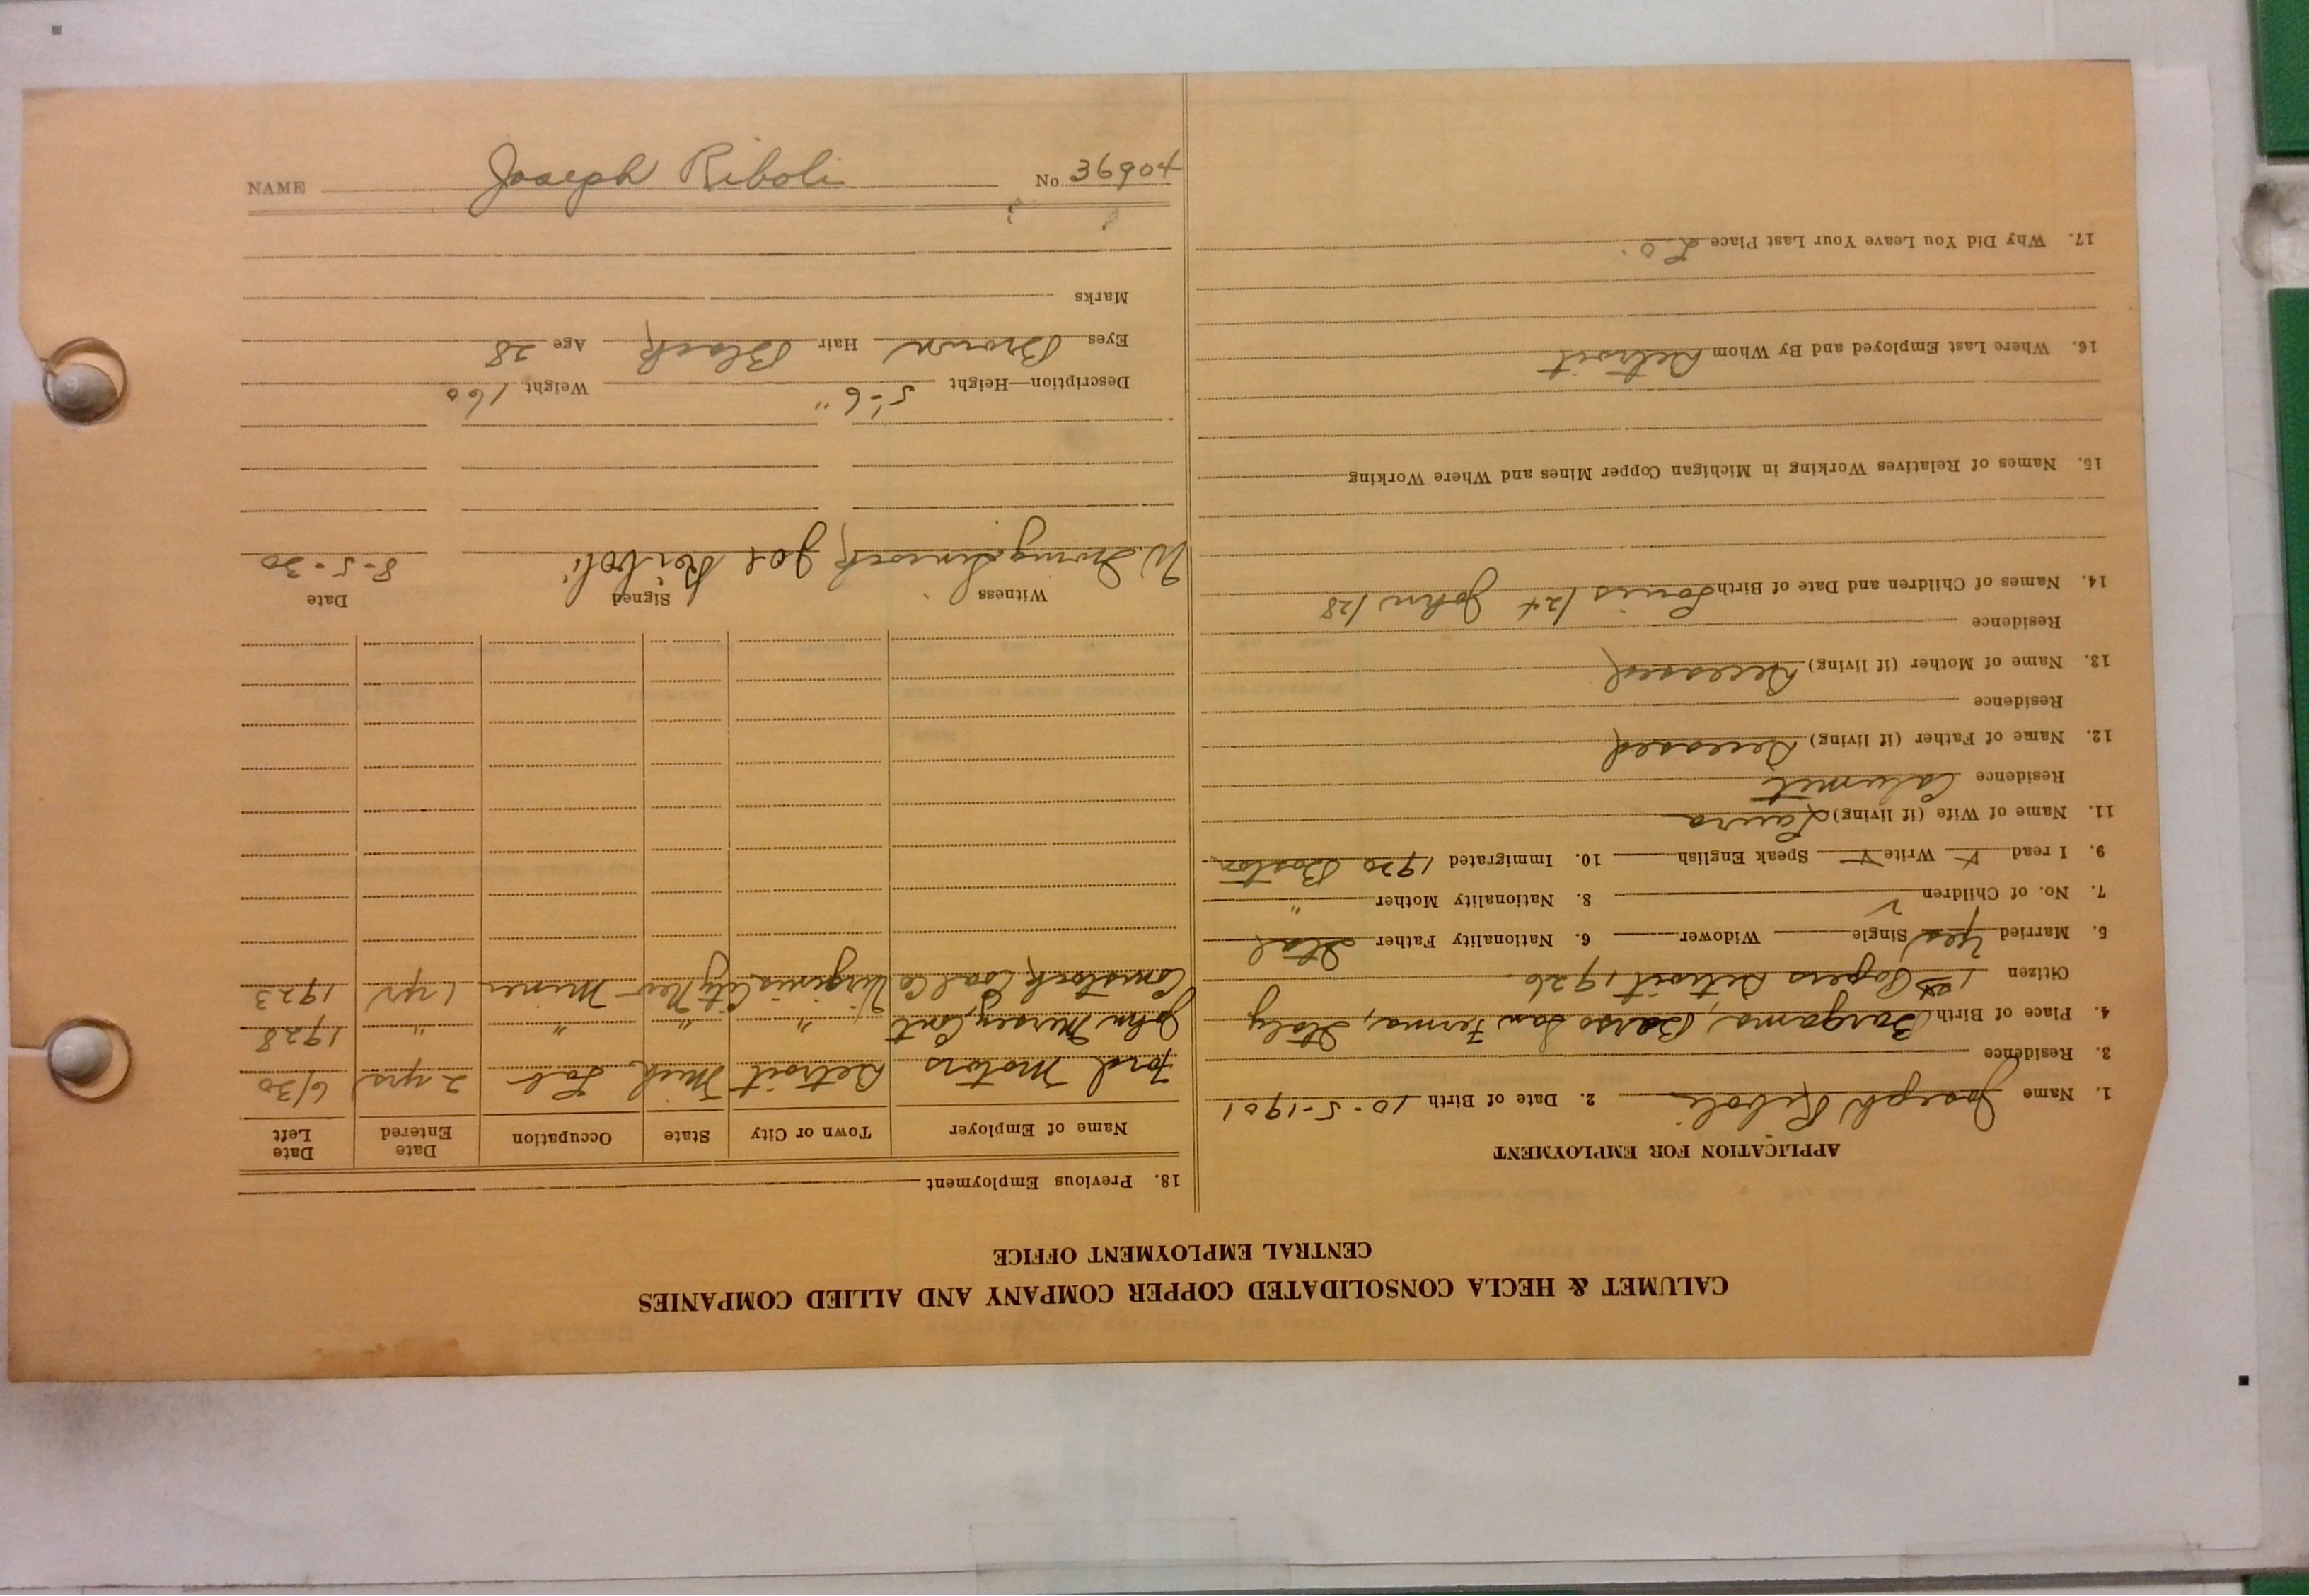 CALUMET & HECLA CONSOLIDATED COPPER COMPANY AND ALLIED COMPANIES
CENTRAL EMPLOYMENT OFFICE
APPLICATION FOR EMPLOYMENT
1. Name Joseph Riboli 2. Date of Birth 10-5-1901
3. Residence
4. Place of Birth Bargama, Barso San Fermo, Italy
Citizen 1st Papers Detroit 1926
5. Married Yes Single Widower 6. Nationality Father Ital
7. No. of Children 2 8. Nationality Mother "
9. I read x Write x Speak English 10. Immigrated 1920 Boston
11. Name of Wife (if living) Laura
Residence Calumet
12. Name of Father (if living) Deceased
Residence
13. Name of Mother (if living) Deceased
Residence
14. Names of Children and Date of Birth Louis /24 John /28
15. Names of Relatives Working in Michigan Copper Mines and Where Working
16. Where Last Employed and By Whom Detroit
17. Why Did You Leave Your Last Place L.O.
18. Previous Employment
Name of Employer Town or City State Occupation Date Entered Date Left
Ford Motors Detroit Mich Lab 2 yrs 6/30
John Mersey, Cont " " " " 1928
Comstock Coal Co Virginia City Nev Miner 1 yr 1923
Witness Signed Date
Joe Reiboli 8-5-30
Description—Height 5'-6" Weight 160
Eyes Brown Hair Black Age 28
Marks
NAME Joseph Riboli No. 36904